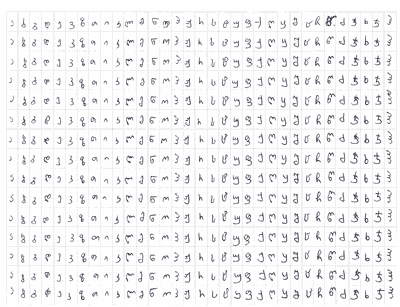 ა ბ გ დ ე ვ ზ თ ი კ ლ მ ნ ო პ ჟ რ ს ტ უ ფ ქ ღ ყ შ ჩ ც ძ წ ჭ ხ ჯ ჰ
ა ბ გ დ ე ვ ზ თ ი კ ლ მ ნ ო პ ჟ რ ს ტ უ ფ ქ ღ ყ შ ჩ ც ძ წ ჭ ხ ჯ ჰ
ა ბ გ დ ე ვ ზ თ ი კ ლ მ ნ ო პ ჟ რ ს ტ უ ფ ქ ღ ყ შ ჩ ც ძ წ ჭ ხ ჯ ჰ
ა ბ გ დ ე ვ ზ თ ი კ ლ მ ნ ო პ ჟ რ ს ტ უ ფ ქ ღ ყ შ ჩ ც ძ წ ჭ ხ ჯ ჰ
ა ბ გ დ ე ვ ზ თ ი კ ლ მ ნ ო პ ჟ რ ს ტ უ ფ ქ ღ ყ შ ჩ ც ძ წ ჭ ხ ჯ ჰ
ა ბ გ დ ე ვ ზ თ ი კ ლ მ ნ ო პ ჟ რ ს ტ უ ფ ქ ღ ყ შ ჩ ც ძ წ ჭ ხ ჯ ჰ
ა ბ გ დ ე ვ ზ თ ი კ ლ მ ნ ო პ ჟ რ ს ტ უ ფ ქ ღ ყ შ ჩ ც ძ წ ჭ ხ ჯ ჰ
ა ბ გ დ ე ვ ზ თ ი კ ლ მ ნ ო პ ჟ რ ს ტ უ ფ ქ ღ ყ შ ჩ ც ძ წ ჭ ხ ჯ ჰ
ა ბ გ დ ე ვ ზ თ ი კ ლ მ ნ ო პ ჟ რ ს ტ უ ფ ქ ღ ყ შ ჩ ც ძ წ ჭ ხ ჯ ჰ
ა ბ გ დ ე ვ ზ თ ი კ ლ მ ნ ო პ ჟ რ ს ტ უ ფ ქ ღ ყ შ ჩ ც ძ წ ჭ ხ ჯ ჰ
ა ბ გ დ ე ვ ზ თ ი კ ლ მ ნ ო პ ჟ რ ს ტ უ ფ ქ ღ ყ შ ჩ ც ძ წ ჭ ხ ჯ ჰ
ა ბ გ დ ე ვ ზ თ ი კ ლ მ ნ ო პ ჟ რ ს ტ უ ფ ქ ღ ყ შ ჩ ც ძ წ ჭ ხ ჯ ჰ
ა ბ გ დ ე ვ ზ თ ი კ ლ მ ნ ო პ ჟ რ ს ტ უ ფ ქ ღ ყ შ ჩ ც ძ წ ჭ ხ ჯ ჰ
ა ბ გ დ ე ვ ზ თ ი კ ლ მ ნ ო პ ჟ რ ს ტ უ ფ ქ ღ ყ შ ჩ ც ძ წ ჭ ხ ჯ ჰ
ა ბ გ დ ე ვ ზ თ ი კ ლ მ ნ ო პ ჟ რ ს ტ უ ფ ქ ღ ყ შ ჩ ც ძ წ ჭ ხ ჯ ჰ